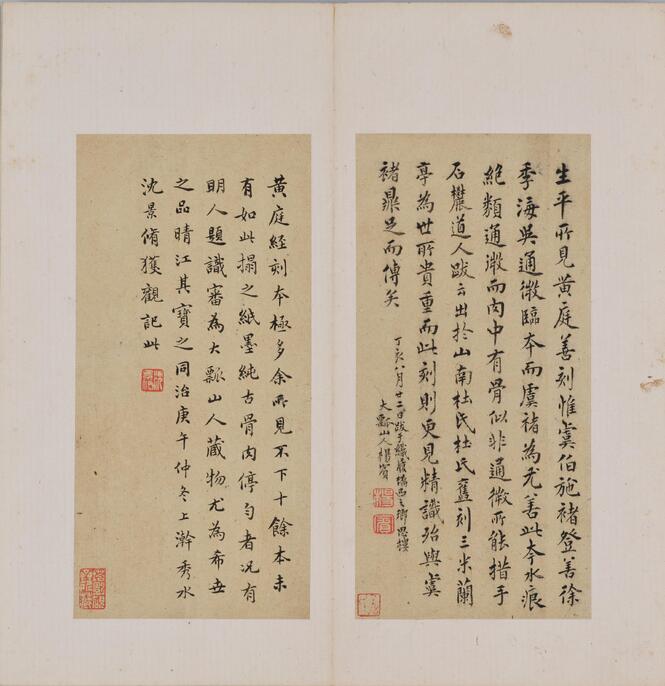 生平所見黃庭善刻惟虞伯施褚登善徐
季海吳通微臨本而虞褚為尤善此本水痕
絕類通微而肉中有骨似非通微所能措手
石農道人跋云出於山南杜氏杜氏舊刻三米蘭
亭為世所貴重而此刻則更見精識殆與虞
褚鼎足而傳矣
丁亥八月廿二日跋于織簾橋西之鄉思樓
大瓢山人楊賓
黃庭經刻本極多余所見不下十餘本未
有如此搨之紙墨純古骨肉停勻者況有
明人題識審為大瓢山人藏物尤為希世
之品晴江其寶之同治庚午仲冬上澣秀水
沈景脩獲觀記此